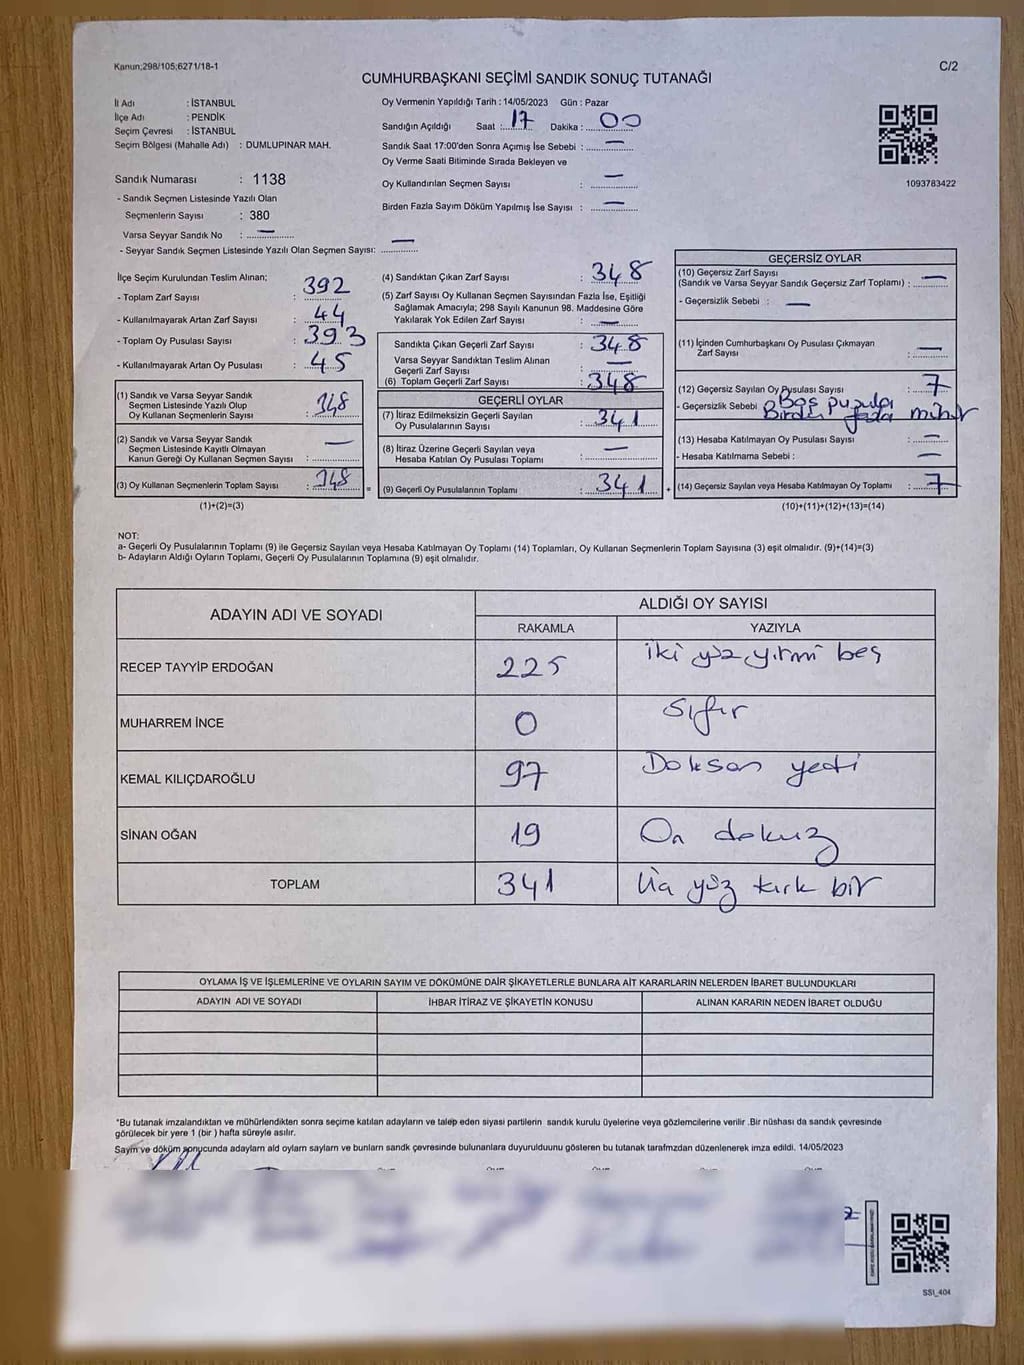 Kanun;298/105;6271/18-1
C/2
CUMHURBAŞKANI SEÇİMİ SANDIK SONUÇ TUTANAĞI
İl Adı : İSTANBUL
İlçe Adı : PENDİK
Seçim Çevresi : İSTANBUL
Seçim Bölgesi (Mahalle Adı) : DUMLUPINAR MAH.
Sandık Numarası : 1138
- Sandık Seçmen Listesinde Yazılı Olan
Seçmenlerin Sayısı : 380
Varsa Seyyar Sandık No : —
- Seyyar Sandık Seçmen Listesinde Yazılı Olan Seçmen Sayısı: —
Oy Vermenin Yapıldığı Tarih : 14/05/2023 Gün : Pazar
Sandığın Açıldığı Saat : 17 Dakika : 00
Sandık Saat 17:00'den Sonra Açımış İse Sebebi : —
Oy Verme Saati Bitiminde Sırada Bekleyen ve
Oy Kullandırılan Seçmen Sayısı : —
Birden Fazla Sayım Döküm Yapılmış İse Sayısı : —
1093783422
İlçe Seçim Kurulundan Teslim Alınan;
- Toplam Zarf Sayısı : 392
- Kullanılmayarak Artan Zarf Sayısı : 44
- Toplam Oy Pusulası Sayısı : 393
- Kullanılmayarak Artan Oy Pusulası : 45
(1) Sandık ve Varsa Seyyar Sandık
Seçmen Listesinde Yazılı Olup
Oy Kullanan Seçmenlerin Sayısı : 348
(2) Sandık ve Varsa Seyyar Sandık
Seçmen Listesinde Kayıtlı Olmayan
Kanun Gereği Oy Kullanan Seçmen Sayısı : —
(3) Oy Kullanan Seçmenlerin Toplam Sayısı : 348
(1)+(2)=(3)
(4) Sandıktan Çıkan Zarf Sayısı : 348
(5) Zarf Sayısı Oy Kullanan Seçmen Sayısından Fazla İse, Eşitliği
Sağlamak Amacıyla; 298 Sayılı Kanunun 98. Maddesine Göre
Yakılarak Yok Edilen Zarf Sayısı : —
Sandıkta Çıkan Geçerli Zarf Sayısı : 348
Varsa Seyyar Sandıktan Teslim Alınan
Geçerli Zarf Sayısı : —
(6) Toplam Geçerli Zarf Sayısı : 348
GEÇERLİ OYLAR
(7) İtiraz Edilmeksizin Geçerli Sayılan
Oy Pusulalarının Sayısı : 341
(8) İtiraz Üzerine Geçerli Sayılan veya
Hesaba Katılan Oy Pusulası Toplamı : —
= (9) Geçerli Oy Pusulalarının Toplamı : 341
GEÇERSİZ OYLAR
(10) Geçersiz Zarf Sayısı
(Sandık ve Varsa Seyyar Sandık Geçersiz Zarf Toplamı) : —
- Geçersizlik Sebebi : —
(11) İçinden Cumhurbaşkanı Oy Pusulası Çıkmayan
Zarf Sayısı : —
(12) Geçersiz Sayılan Oy Pusulası Sayısı : 7
- Geçersizlik Sebebi Boş pusula
Birden fazla mühür
(13) Hesaba Katılmayan Oy Pusulası Sayısı : —
- Hesaba Katılmama Sebebi : —
+ (14) Geçersiz Sayılan veya Hesaba Katılmayan Oy Toplamı : 7
(10)+(11)+(12)+(13)=(14)
NOT:
a- Geçerli Oy Pusulalarının Toplamı (9) ile Geçersiz Sayılan veya Hesaba Katılmayan Oy Toplamı (14) Toplamları, Oy Kullanan Seçmenlerin Toplam Sayısına (3) eşit olmalıdır. (9)+(14)=(3)
b- Adayların Aldığı Oyların Toplamı, Geçerli Oy Pusulalarının Toplamına (9) eşit olmalıdır.
ADAYIN ADI VE SOYADI
ALDIĞI OY SAYISI
RAKAMLA YAZIYLA
RECEP TAYYİP ERDOĞAN 225 iki yüz yirmi beş
MUHARREM İNCE 0 sıfır
KEMAL KILIÇDAROĞLU 97 Doksan yedi
SİNAN OĞAN 19 On dokuz
TOPLAM 341 Üç yüz kırk bir
OYLAMA İŞ VE İŞLEMLERİNE VE OYLARIN SAYIM VE DÖKÜMÜNE DAİR ŞİKAYETLERLE BUNLARA AİT KARARLARIN NELERDEN İBARET BULUNDUKLARI
ADAYIN ADI VE SOYADI İHBAR İTİRAZ VE ŞİKAYETİN KONUSU ALINAN KARARIN NEDEN İBARET OLDUĞU
*Bu tutanak imzalandıktan ve mühürlendikten sonra seçime katılan adayların ve talep eden siyasi partilerin sandık kurulu üyelerine veya gözlemcilerine verilir .Bir nüshası da sandık çevresinde
görülecek bir yere 1 (bir ) hafta süreyle asılır.
Sayım ve döküm sonucunda adayların ald oyların sayıları ve bunların sandk çevresinde bulunanlara duyurulduunu gösteren bu tutanak tarafmzdan düzenlenerek imza edildi. 14/05/2023
SSI_404